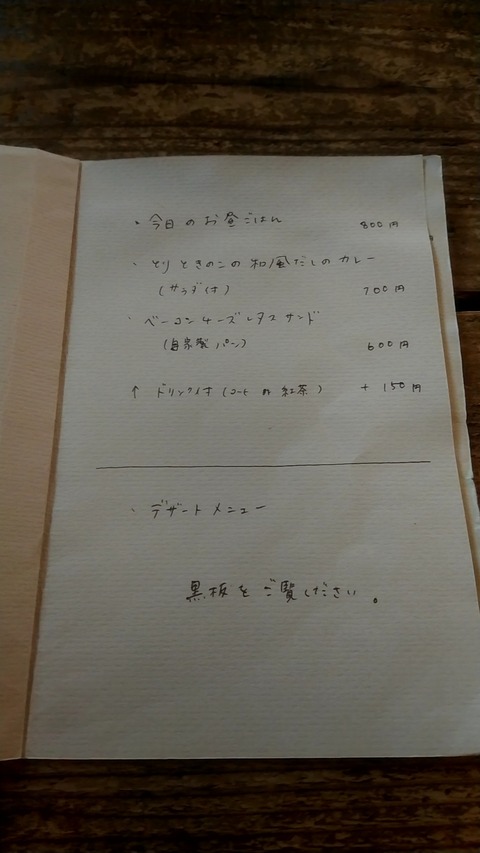 ・今日のお昼ごはん 800円
・とりときのこの和風だしのカレー
(サラダ付) 700円
・ベーコンチーズレタスサンド
(自家製パン) 600円
↑ドリンク付(コーヒー or 紅茶) +150円
・デザートメニュー
黒板をご覧ください。